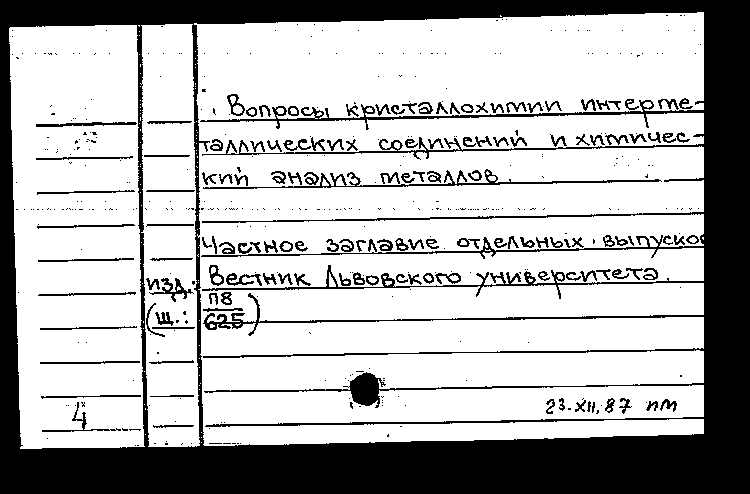 Вопросы кристаллохимии интерме-
таллических соединений и химичес-
кий анализ металлов.
Частное заглавие отдельных выпусков
изд.: Вестник Львовского университета.
(Щ.: П8/625)
4
23.XII.87 пм